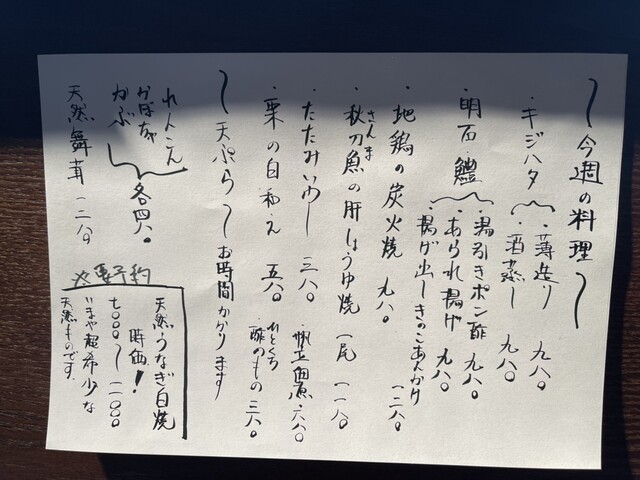 〜今週の料理〜
・キジハタ
・薄造り 九八〇
・酒蒸し 九八〇
・明石 鱧
・湯引きポン酢 九八〇
・あられ揚げ 九八〇
・揚げ出しきのこあんかけ 一二八〇
・地鶏の炭火焼 九八〇
さんま
・秋刀魚の肝しょうゆ焼 一尾 一一八〇
・たたみいわし 三八〇
・帆立佃煮 六八〇
・栗の白和え 五八〇
ひとくち
酢のもの 三八〇
〜天ぷら〜お時間かかります
れんこん
かぼちゃ
かぶ
各四八〇
天然舞茸 一二八〇
要予約
天然うなぎ白焼
時価!
七〇〇〇〜一一〇〇〇
いまや超希少な
天然ものです。